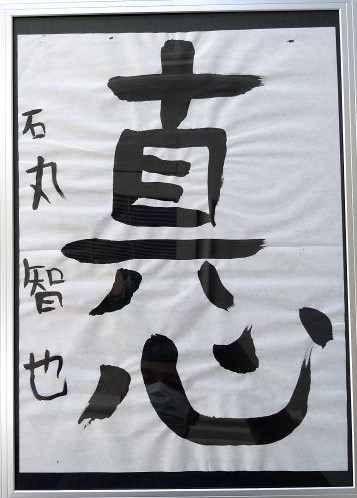 真心
石丸智也